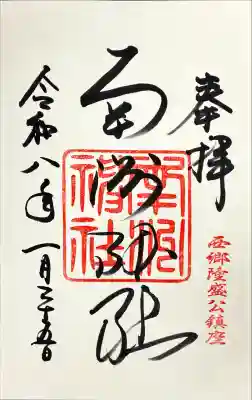 奉拝
西郷隆盛公鎮座
南洲神社
南洲
神社
令和八年一月二十五日